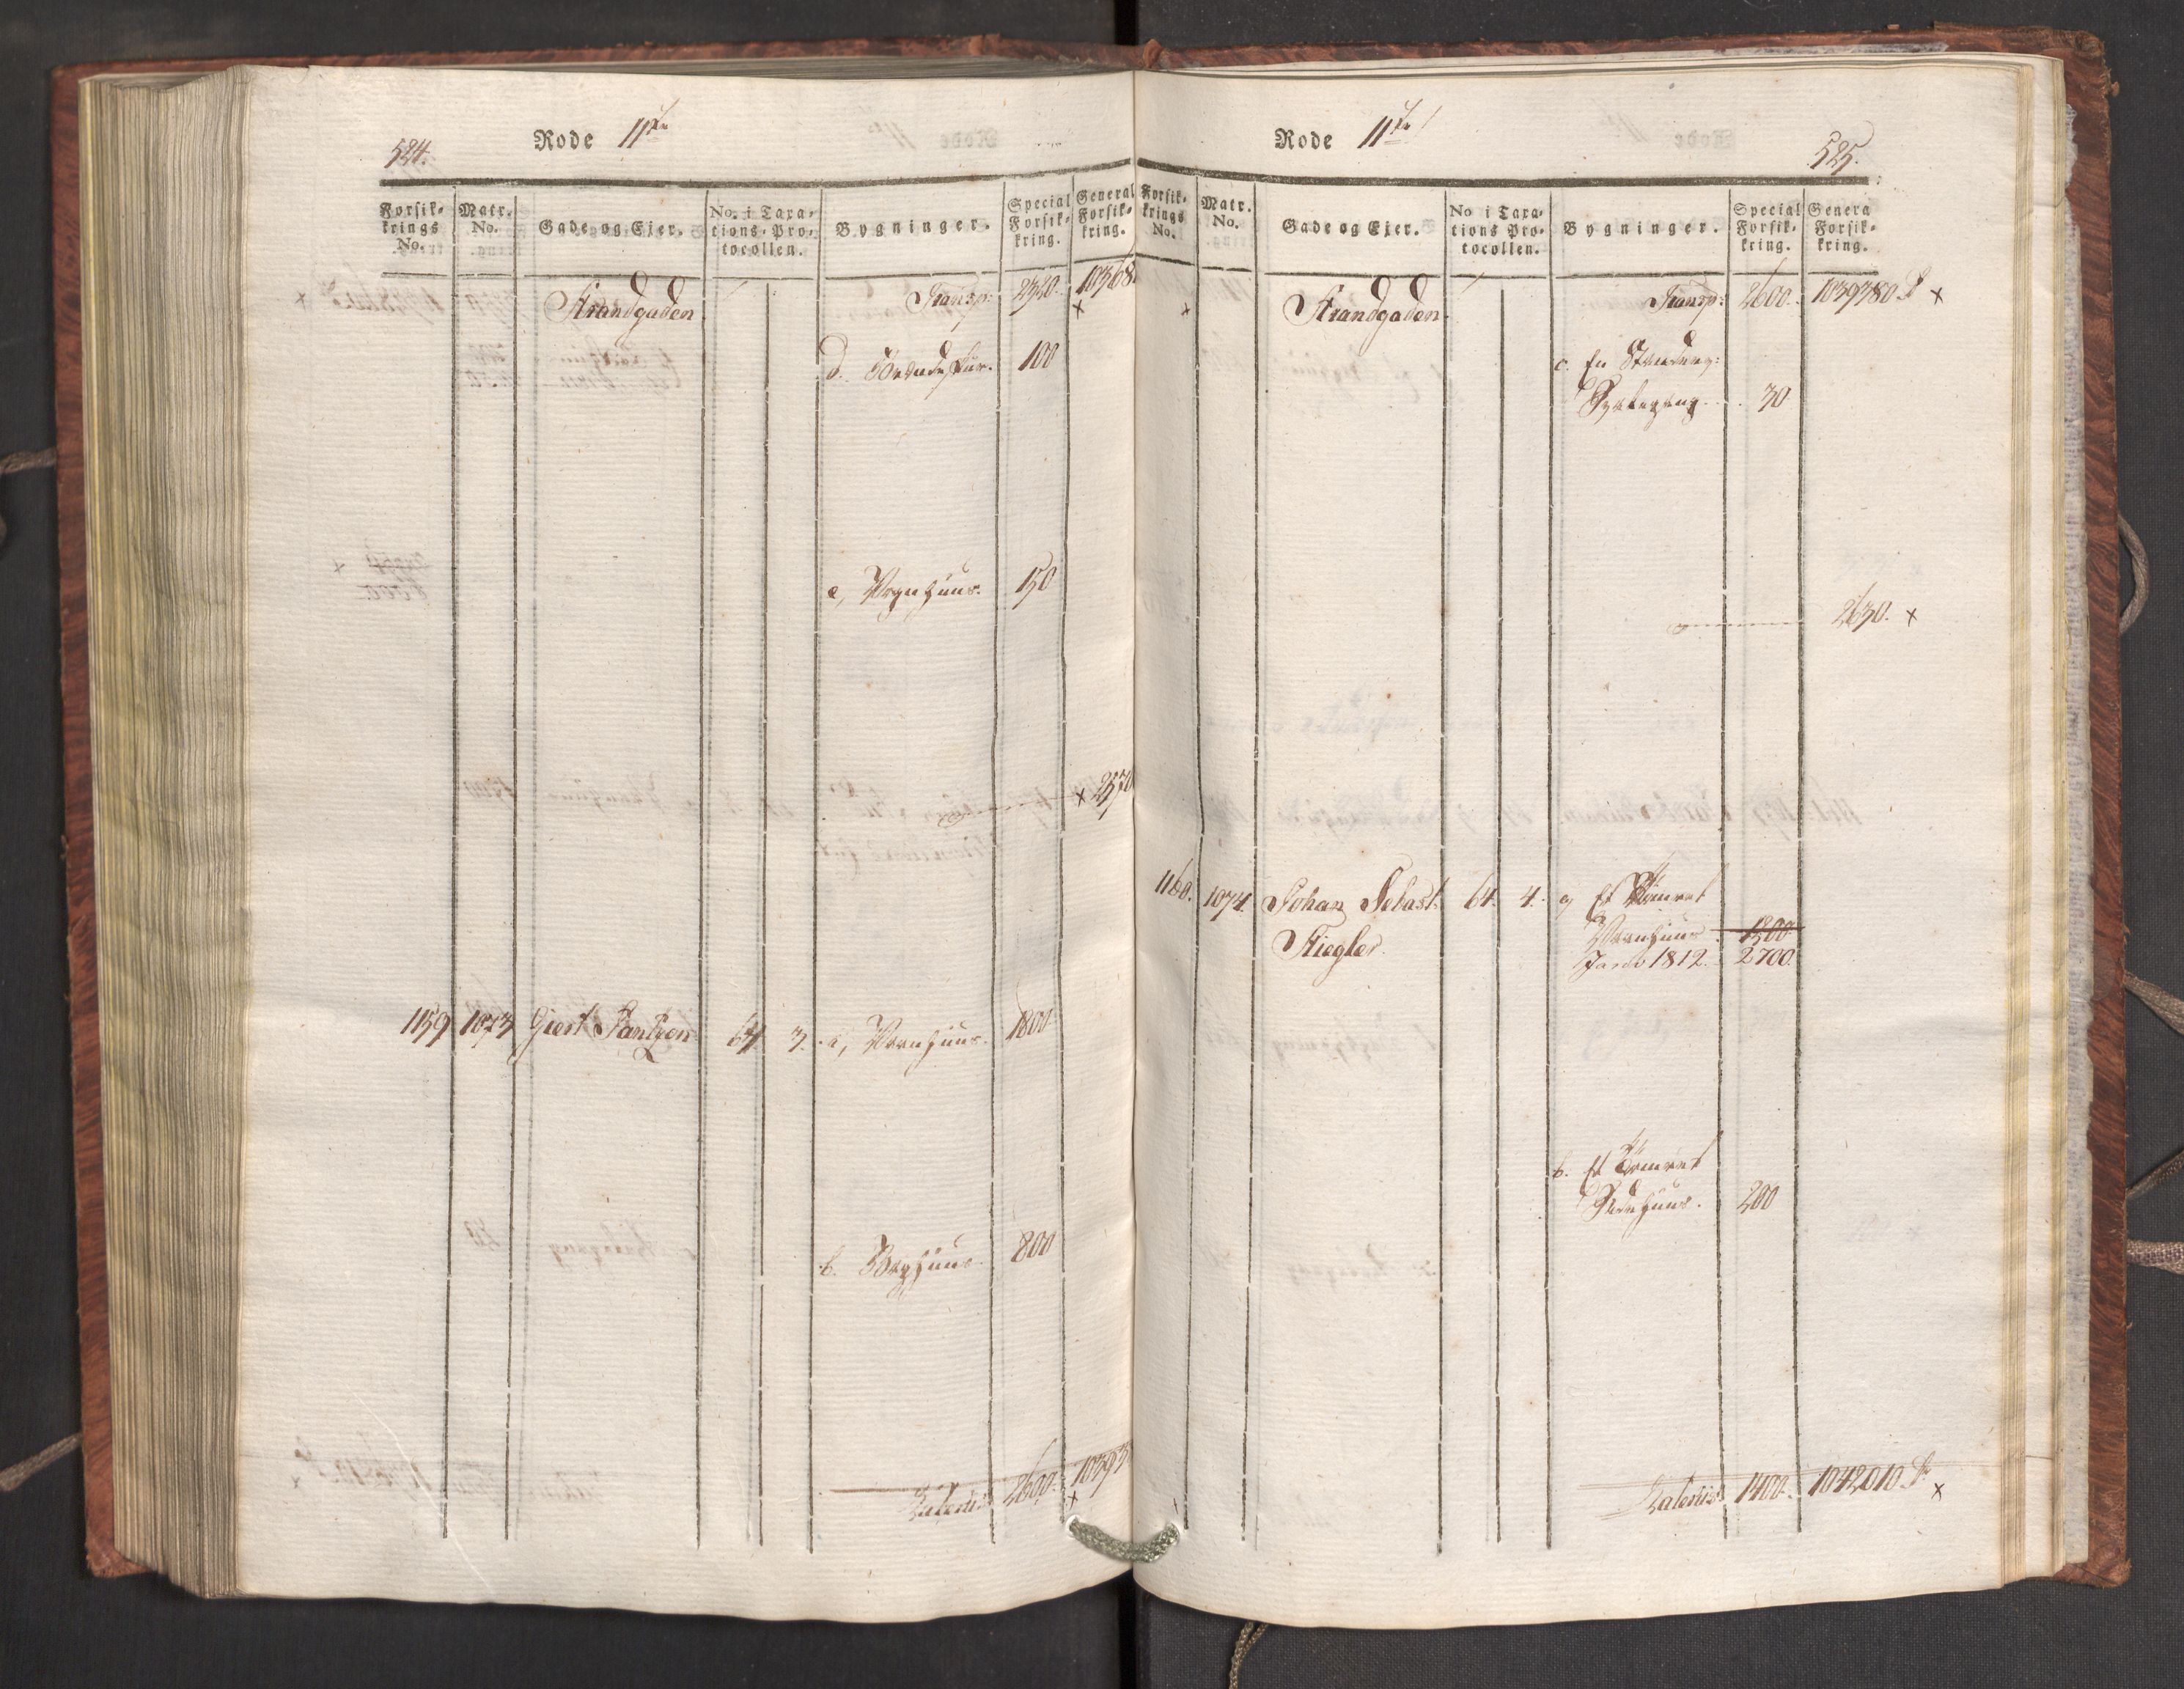 524.
Rode 11te
Forsik-
krings
No.
Matr.
No.
Gade og Ejer.
No. i Taxa-
tions-Pro-
tocollen.
Bygninger.
Special
Forsik-
kring.
General
Forsik-
kring.
Strandgaden
Transp: 2320. 10368
d. 100
e, Vognhuus. 150
2570
1159 1073 Giert Jantzen 64 3. a, Vaanhuus. 1800
b. Baghuus. 800
Lateris 2600. 10393
Rode 11te
525.
Forsik-
krings
No.
Matr.
No.
Gade og Ejer.
No i Taxa-
tions Pro-
tocollen.
Bygninger.
Special
Forsik-
kring.
Genera
Forsik-
kring.
Strandgaden.
Transp: 2600. 1039380
c. En
30
2630.
1160. 1074. Johan Sebast. 64. 4. a, Et
Stiegler. Vaanhuus 1200
1812. 2700.
b. Et Tømret
Sidehuus. 200
Lateris 1400. 1042,010